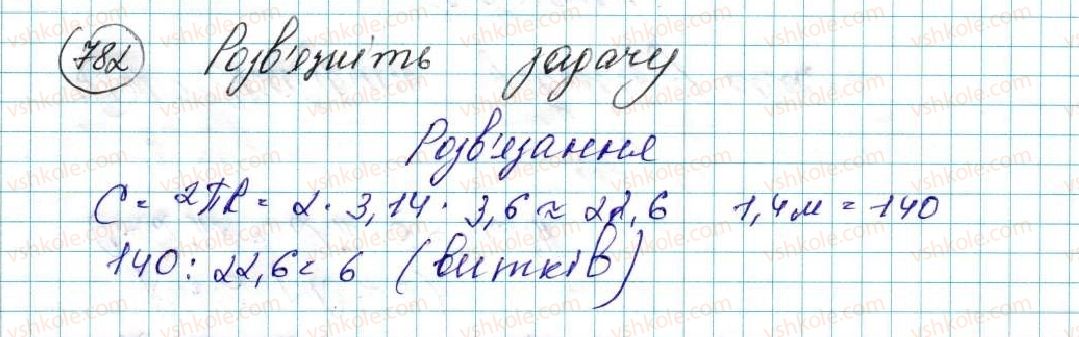 782 Розв'яжіть задачу
Розв'язання
C = 2ПR = 2 · 3,14 · 3,6 ≈ 22,6 1,4м = 140
140 : 22,6 = 6 (витків)